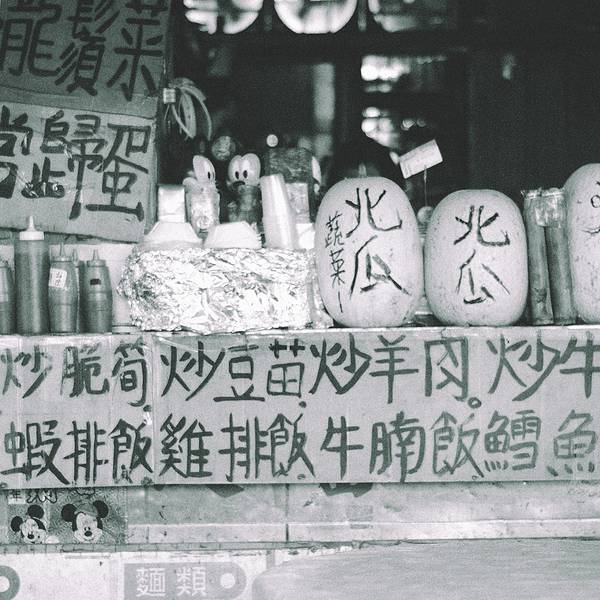 龍鬚菜
當歸蛋
北瓜
蔬菜
北瓜
炒脆筍 炒豆苗 炒羊肉 炒牛
蝦排飯 雞排飯 牛腩飯 鱈魚
麵類